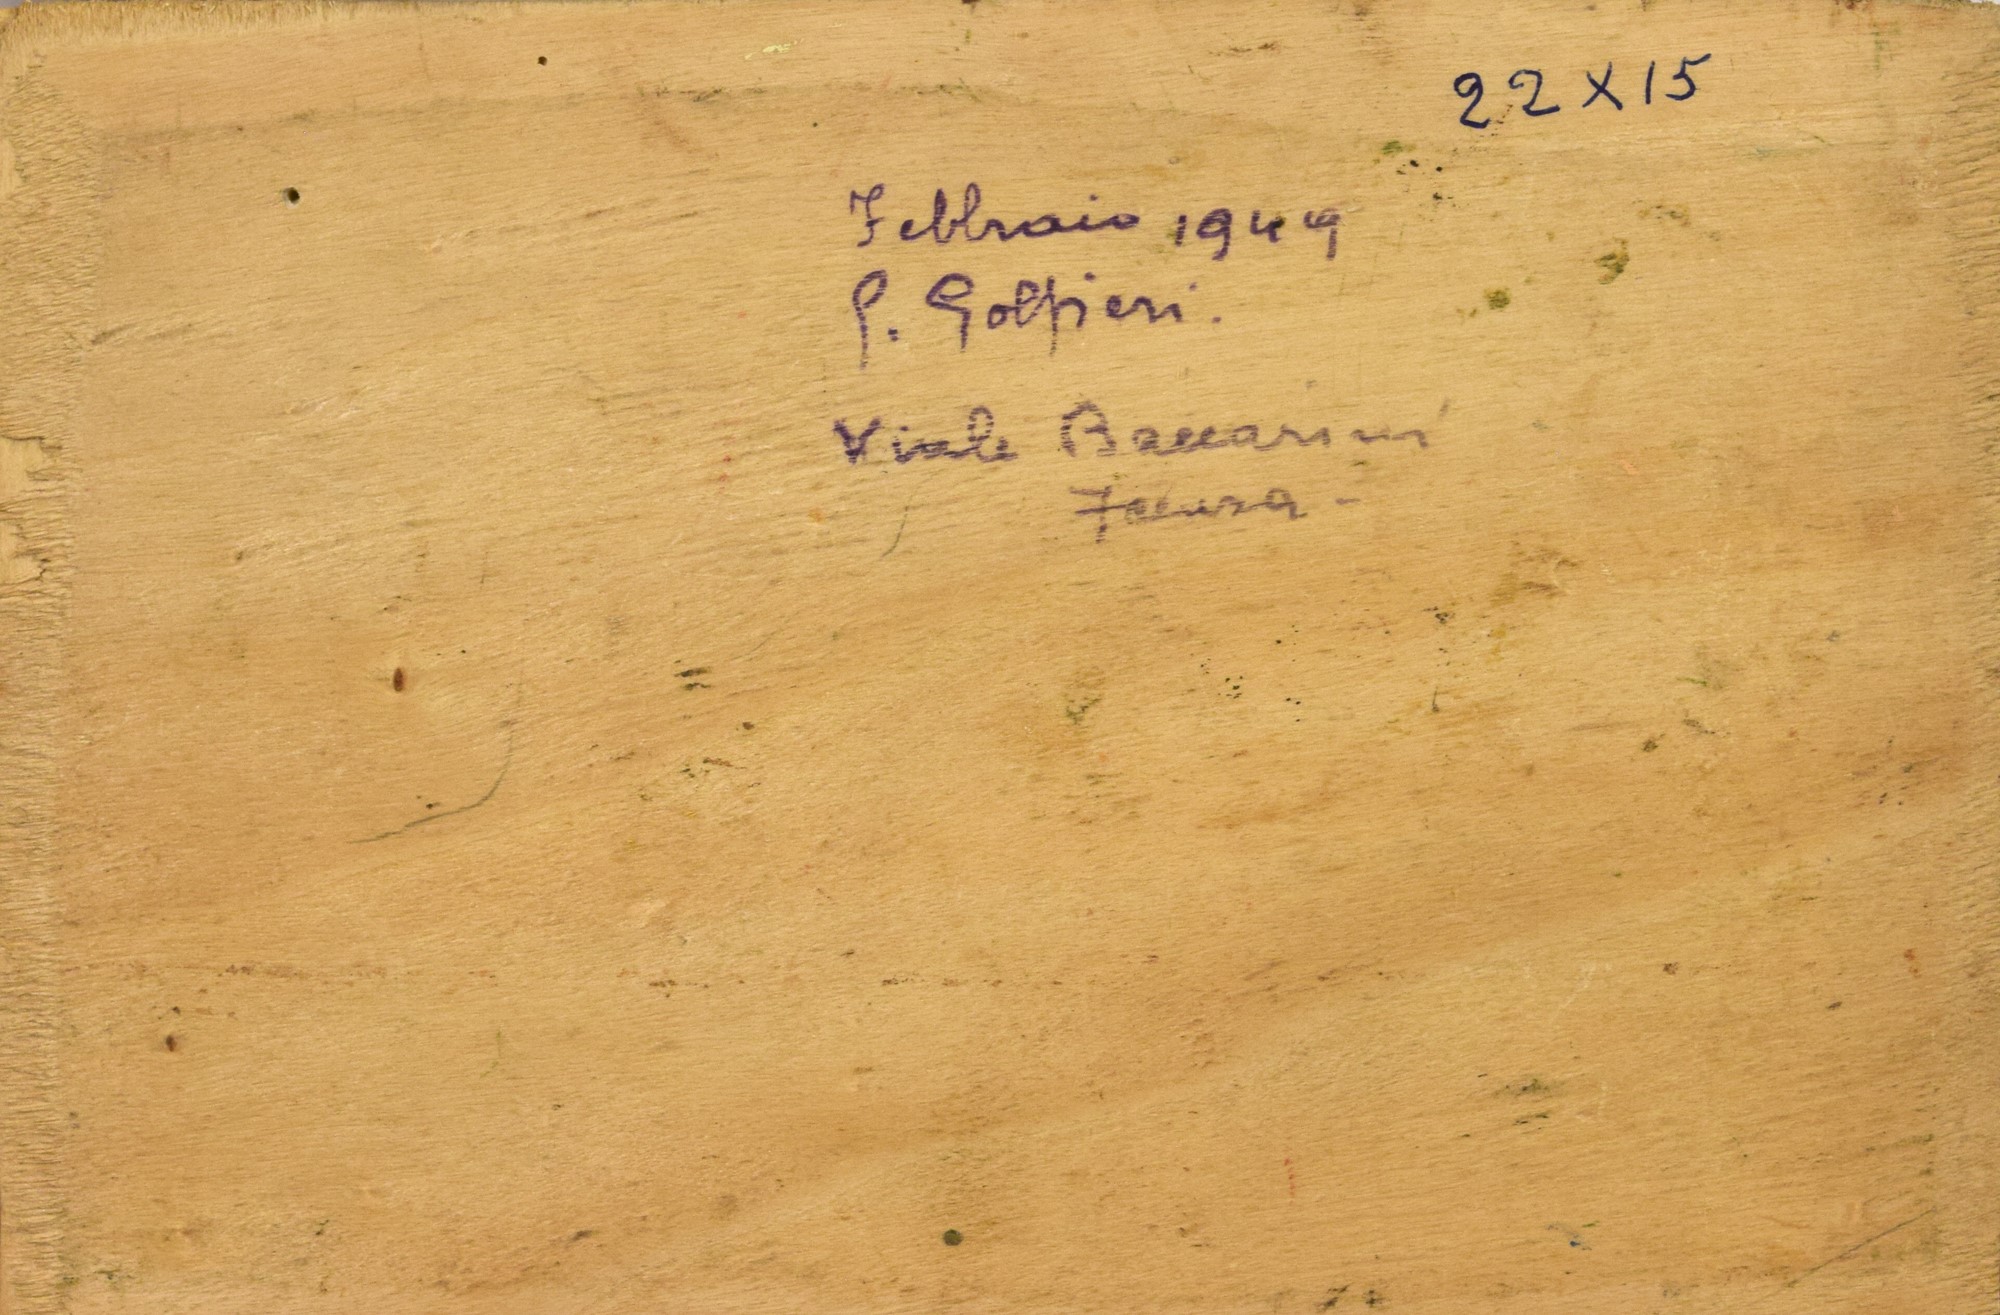 22 X 15
Febbraio 1949
G. Golfieri.
Viale Baccarini
Faenza -